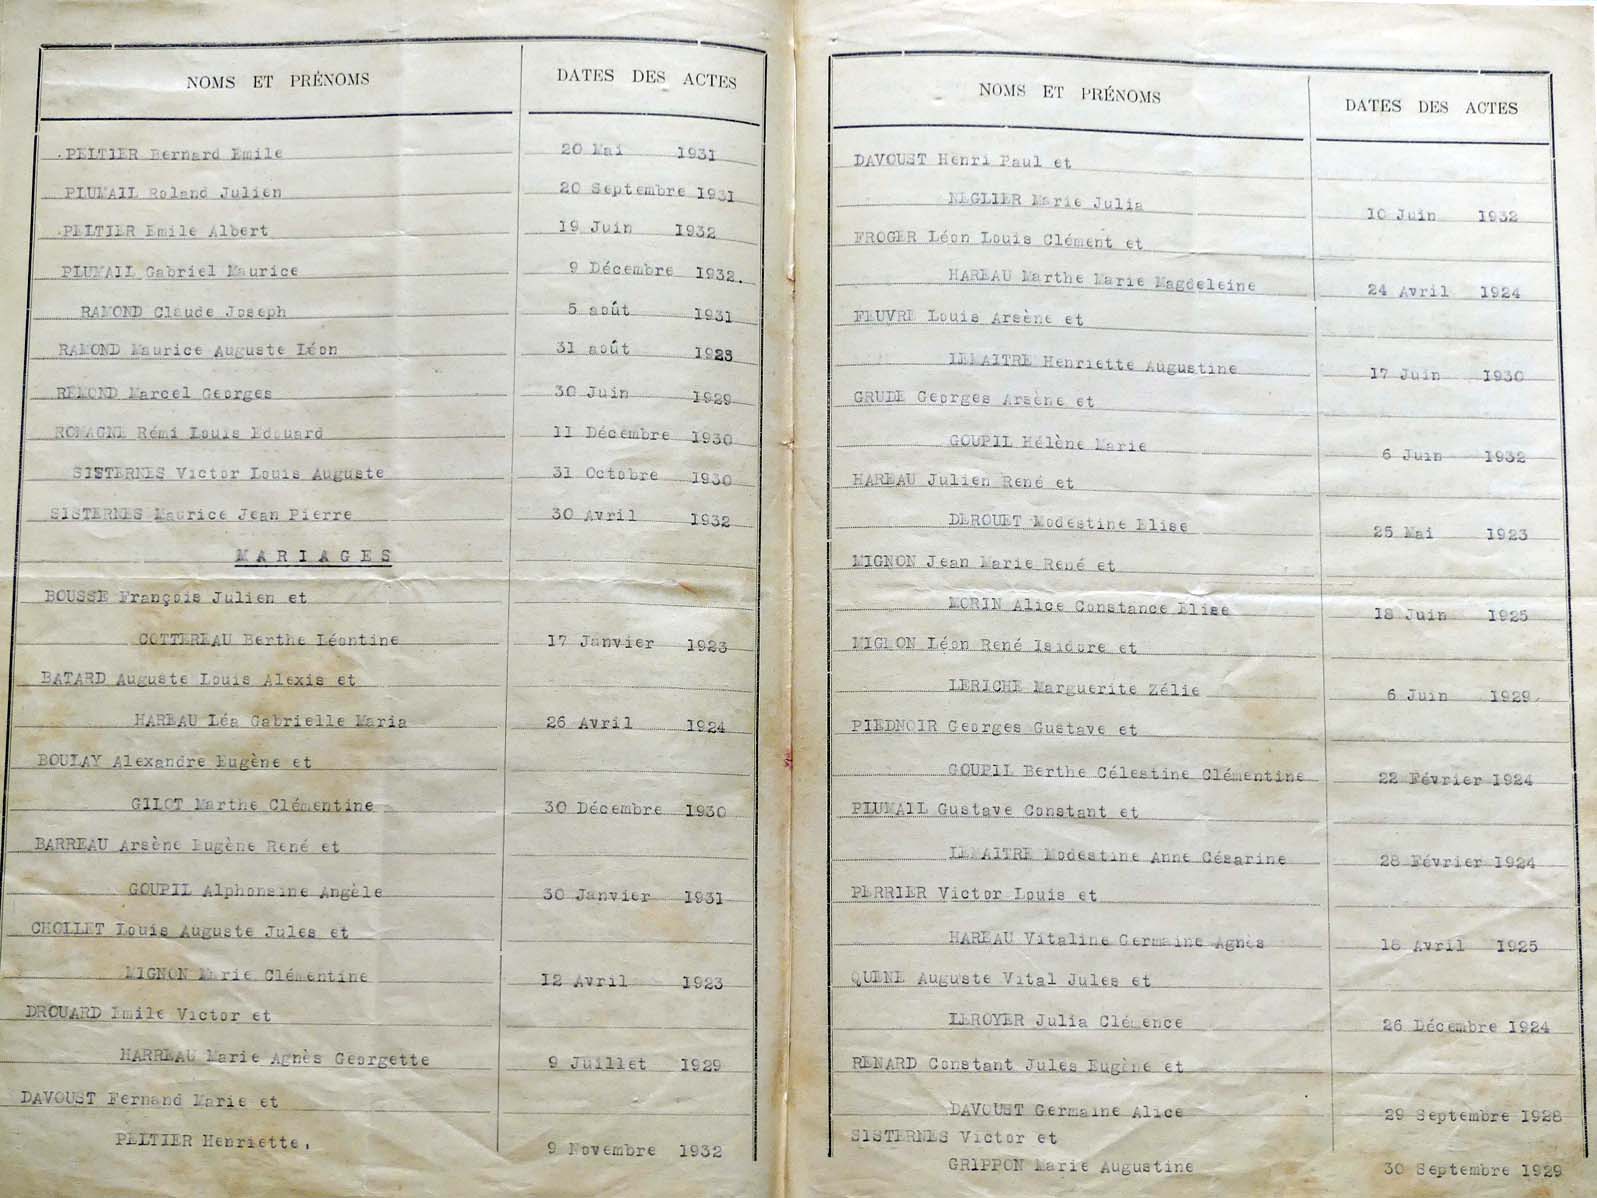 NOMS ET PRÉNOMS DATES DES ACTES
PELTIER Bernard Emile 20 Mai 1931
PLUMAIL Roland Julien 20 Septembre 1931
PELTIER Emile Albert 19 Juin 1932
PLUMAIL Gabriel Maurice 9 Décembre 1932.
RAMOND Claude Joseph 5 août 1931
RAMOND Maurice Auguste Léon 31 août
REMOND Marcel Georges 30 Juin 1929
ROMAGNE Rémi Louis Edouard 11 Décembre 1930
SISTERNES Victor Louis Auguste 31 Octobre 1930
SISTERNES Maurice Jean Pierre 30 Avril 1932
MARIAGES
BOUSSE François Julien et
COTTEREAU Berthe Léontine 17 Janvier 1923
BATARD Auguste Louis Alexis et
HAREAU Léa Gabrielle Maria 26 Avril 1924
BOULAY Alexandre Eugène et
GILOT Marthe Clémentine 30 Décembre 1930
BARREAU Arsène Eugène René et
GOUPIL Alphonsine Angèle 30 Janvier 1931
CHOLLET Louis Auguste Jules et
MIGNON Marie Clémentine 12 Avril 1923
DROUARD Emile Victor et
HARREAU Marie Agnès Georgette 9 Juillet 1929
DAVOUST Fernand Marie et
PELTIER Henriette. 9 Novembre 1932
NOMS ET PRÉNOMS DATES DES ACTES
DAVOUST Henri Paul et
NEGLIER Marie Julia 10 Juin 1932
FROGER Léon Louis Clément et
HAREAU Marthe Marie Magdeleine 24 Avril 1924
FEUVRE Louis Arsène et
LEMAITRE Henriette Augustine 17 Juin 1930
GRUDE Georges Arsène et
GOUPIL Hélène Marie 6 Juin 1932
HAREAU Julien René et
DEROUET Modestine Elise 25 Mai 1923
MIGNON Jean Marie René et
MORIN Alice Constance Elise 18 Juin 1925
MIGNON Léon René Isidore et
LERICHE Marguerite Zélie 6 Juin 1929
PIEDNOIR Georges Gustave et
GOUPIL Berthe Célestine Clémentine 22 Février 1924
PLUMAIL Gustave Constant et
LEMAITRE Modestine Anne Césarine 28 Février 1924
PERRIER Victor Louis et
HAREAU Vitaline Germaine Agnès 18 Avril 1925
QUENE Auguste Vital Jules et
LEROYER Julia Clémence 26 Décembre 1924
RENARD Constant Jules Eugène et
DAVOUST Germaine Alice 29 Septembre 1928
SISTERNES Victor et
GRIPPON Marie Augustine 30 Septembre 1929